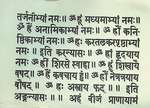 तर्जनीभ्यां नमः॥ हूं मध्यमाभ्यां नमः॥
हैं अनामिकाभ्यां नमः॥ हौं कनि-
ष्ठिकाभ्यां नमः॥ हः करतलकरपृष्ठाभ्यां
नमः॥ इति करन्यासः॥ हां हृदयाय
नमः॥ हीं शिरसे स्वाहा॥ हूं शिखायै
वषट्॥ हैं कवचाय हुं॥ हौं नेत्रत्रयाय
वौषट्॥ हः अस्त्राय फट्॥ इति
अङ्गन्यासः॥ अहं बीजं प्राणायामं